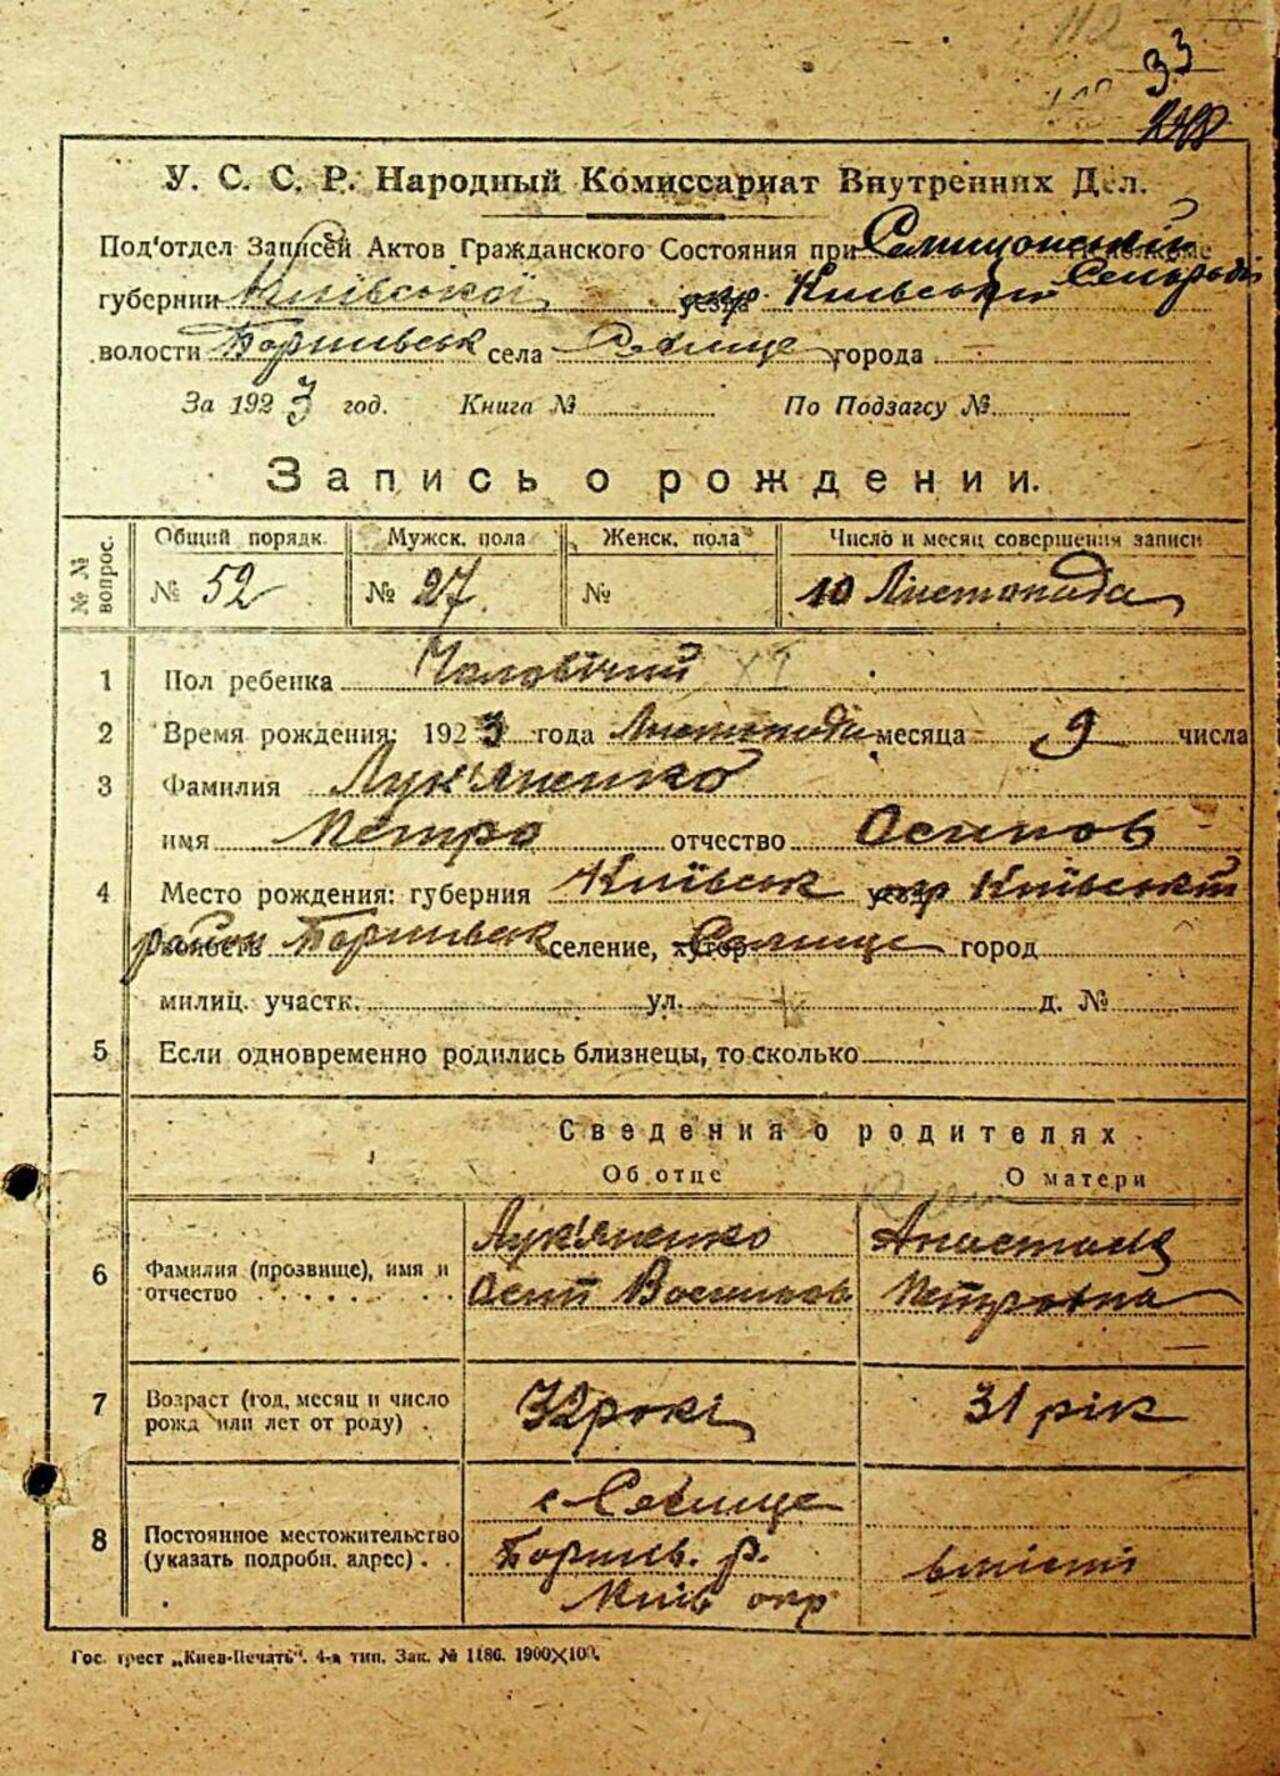 33
У. С. С. Р. Народный Комиссариат Внутренних Дел.
Под'отдел Записей Актов Гражданского Состояния при Селищанській Сельраді
губернии Київської окр. Київський
волости Бориспільськ села Селище города
За 1923 год. Книга № По Подзагсу №
Запись о рождении.
№ № вопрос. Общий порядк. Мужск. пола Женск. пола Число и месяц совершения записи
№ 52 № 27. № 10 Листопада
1 Пол ребенка Чоловічий XI
2 Время рождения: 1923 года Листопада месяца 9 числа
3 Фамилия Лук'яненко
имя Петро отчество Осипов
4 Место рождения: губерния Київськ окр Київський
район селение, Селище город
милиц. участк. ул. д. №
5 Если одновременно родились близнецы, то сколько
Сведения о родителях
Об отце О матери
6 Фамилия (прозвище), имя и отчество Лук'яненко Анастасія
Осип Петровна
7 Возраст (год, месяц и число рожд или лет от роду) 32 рокі 31 рік
8 Постоянное местожительство (указать подробн. адрес) с. Селище
р.
Київ окр
Гос. трест „Киев-Печать“. 4-я тип. Зак. № 1186. 1900×100.